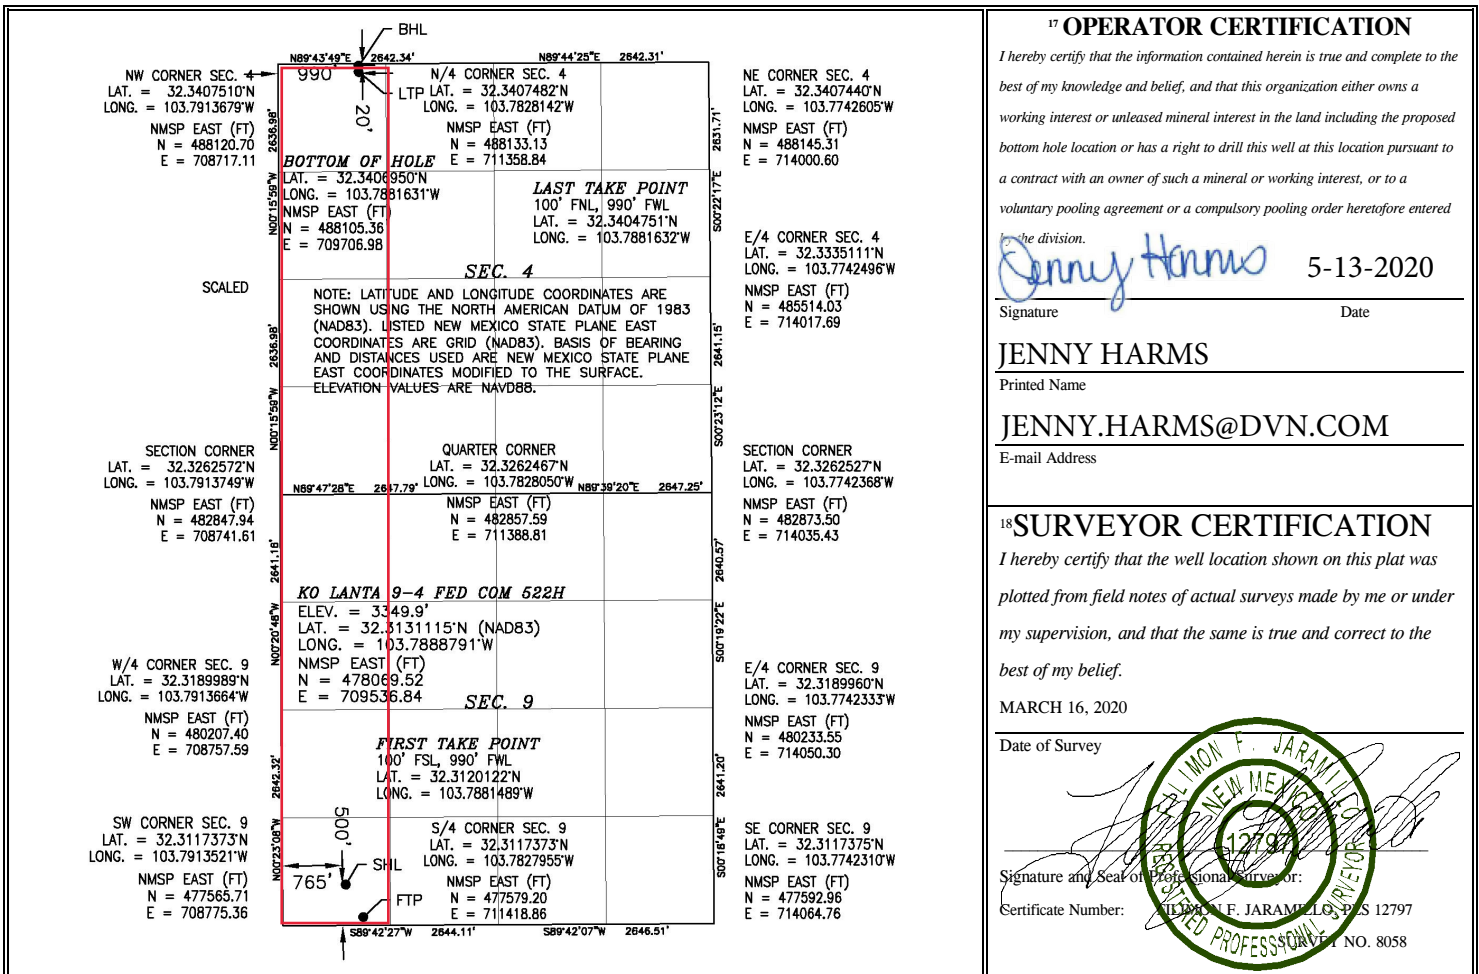 BHL
N89°43'49"E 2642.34'
N89°44'25"E 2642.31'
990'
LTP
20'
NW CORNER SEC. 4
LAT. = 32.3407510°N
LONG. = 103.7913679°W
NMSP EAST (FT)
N = 488120.70
E = 708717.11
N/4 CORNER SEC. 4
LAT. = 32.3407482°N
LONG. = 103.7828142°W
NMSP EAST (FT)
N = 488133.13
E = 711358.84
NE CORNER SEC. 4
LAT. = 32.3407440°N
LONG. = 103.7742605°W
NMSP EAST (FT)
N = 488145.31
E = 714000.60
2636.98'
2631.71'
BOTTOM OF HOLE
LAT. = 32.3406950°N
LONG. = 103.7881631°W
NMSP EAST (FT)
N = 488105.36
E = 709706.98
LAST TAKE POINT
100' FNL, 990' FWL
LAT. = 32.3404751°N
LONG. = 103.7881632°W
N00°15'59"W
S00°22'17"E
E/4 CORNER SEC. 4
LAT. = 32.3335111°N
LONG. = 103.7742496°W
NMSP EAST (FT)
N = 485514.03
E = 714017.69
SEC. 4
SCALED
NOTE: LATITUDE AND LONGITUDE COORDINATES ARE
SHOWN USING THE NORTH AMERICAN DATUM OF 1983
(NAD83). LISTED NEW MEXICO STATE PLANE EAST
COORDINATES ARE GRID (NAD83). BASIS OF BEARING
AND DISTANCES USED ARE NEW MEXICO STATE PLANE
EAST COORDINATES MODIFIED TO THE SURFACE.
ELEVATION VALUES ARE NAVD88.
2636.98'
2641.15'
N00°15'59"W
S00°23'12"E
SECTION CORNER
LAT. = 32.3262572°N
LONG. = 103.7913749°W
NMSP EAST (FT)
N = 482847.94
E = 708741.61
QUARTER CORNER
LAT. = 32.3262467°N
LONG. = 103.7828050°W
NMSP EAST (FT)
N = 482857.59
E = 711388.81
SECTION CORNER
LAT. = 32.3262527°N
LONG. = 103.7742368°W
NMSP EAST (FT)
N = 482873.50
E = 714035.43
N89°47'28"E 2647.79'
N89°39'20"E 2647.25'
2641.16'
2640.57'
KO LANTA 9-4 FED COM 522H
ELEV. = 3349.9'
LAT. = 32.3131115°N (NAD83)
LONG. = 103.7888791°W
NMSP EAST (FT)
N = 478069.52
E = 709536.84
N00°20'48"W
S00°19'22"E
W/4 CORNER SEC. 9
LAT. = 32.3189989°N
LONG. = 103.7913664°W
NMSP EAST (FT)
N = 480207.40
E = 708757.59
SEC. 9
E/4 CORNER SEC. 9
LAT. = 32.3189960°N
LONG. = 103.7742333°W
NMSP EAST (FT)
N = 480233.55
E = 714050.30
FIRST TAKE POINT
100' FSL, 990' FWL
LAT. = 32.3120122°N
LONG. = 103.7881489°W
2642.32'
2641.20'
500'
N00°23'08"W
S00°18'49"E
SW CORNER SEC. 9
LAT. = 32.3117373°N
LONG. = 103.7913521°W
NMSP EAST (FT)
N = 477565.71
E = 708775.36
S/4 CORNER SEC. 9
LAT. = 32.3117373°N
LONG. = 103.7827955°W
NMSP EAST (FT)
N = 477579.20
E = 711418.86
SE CORNER SEC. 9
LAT. = 32.3117375°N
LONG. = 103.7742310°W
NMSP EAST (FT)
N = 477592.96
E = 714064.76
SHL
765'
FTP
S89°42'27"W 2644.11'
S89°42'07"W 2646.51'
17 OPERATOR CERTIFICATION
I hereby certify that the information contained herein is true and complete to the
best of my knowledge and belief, and that this organization either owns a
working interest or unleased mineral interest in the land including the proposed
bottom hole location or has a right to drill this well at this location pursuant to
a contract with an owner of such a mineral or working interest, or to a
voluntary pooling agreement or a compulsory pooling order heretofore entered
by the division.
Jenny Harms 5-13-2020
Signature Date
JENNY HARMS
Printed Name
JENNY.HARMS@DVN.COM
E-mail Address
18SURVEYOR CERTIFICATION
I hereby certify that the well location shown on this plat was
plotted from field notes of actual surveys made by me or under
my supervision, and that the same is true and correct to the
best of my belief.
MARCH 16, 2020
Date of Survey
FILIMON F. JARAMILLO
NEW MEXICO
12797
REGISTERED PROFESSIONAL SURVEYOR
Signature and Seal of Professional Surveyor:
Certificate Number: FILIMON F. JARAMILLO, PLS 12797
SURVEY NO. 8058